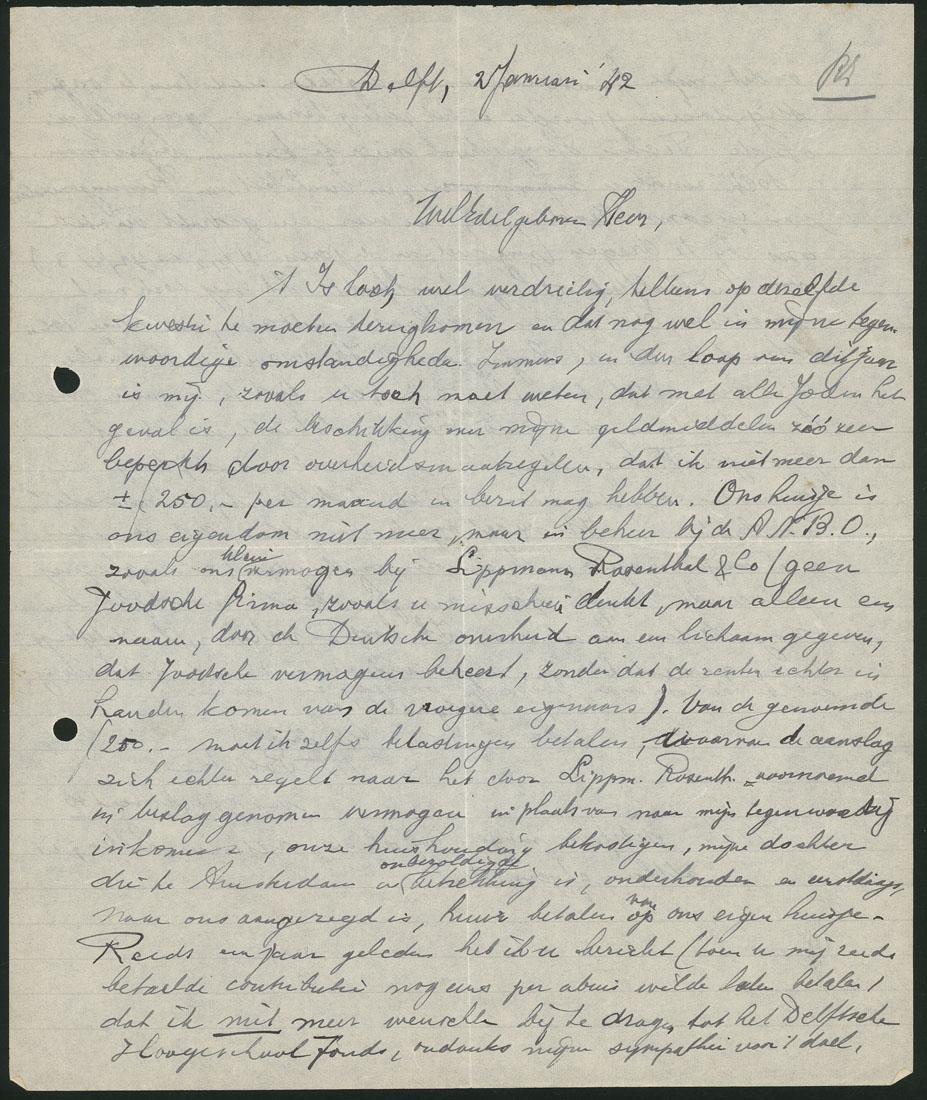 Delft, 2 Januari '42
WelEdelgeboren Heer,
't Is toch wel verdrietig, telkens op dezelfde
kwestie te moeten terugkomen en dat nog wel in mijne tegen-
woordige omstandigheden. Immers, in den loop van dit jaar
is mij, zooals u toch moet weten, dat met alle Joden het
geval is, de beschikking over mijne geldmiddelen zóó zeer
beperkt door overheidsmaatregelen, dat ik niet meer dan
± ƒ 250.- per maand in bezit mag hebben. Ons huisje is
ons eigendom niet meer, maar in beheer bij de A.N.B.O.,
zooals ons klein vermogen bij Lippmann Rosenthal & Co (geen
Joodsche firma, zooals u misschien denkt, maar alleen een
naam, door de Duitsche overheid aan een lichaam gegeven,
dat Joodsche vermogens beheert, zonder dat de renten echter in
handen komen van de vroegere eigenaars). Van de genoemde
ƒ 250.- moet ik zelfs belastingen betalen, waarvan de aanslag
zich echter regelt naar het door Lippm. Rosenth. voornoemd
in beslag genomen vermogen in plaats van naar mijn tegenwoordig
inkomen, onze huishouding bekostigen, mijne dochter
die te Amsterdam in onbezoldigde betrekking is, onderhouden en eerstdaags,
naar ons aangezegd is, huur betalen van ons eigen huisje.-
Reeds een jaar geleden heb ik u bericht (toen u mij reeds
betaalde contributie nog eens per abuis wilde laten betalen)
dat ik niet meer wenschte bij te dragen tot het Delftsche
Hoogeschool Fonds, ondanks mijne sympathie voor 't doel,